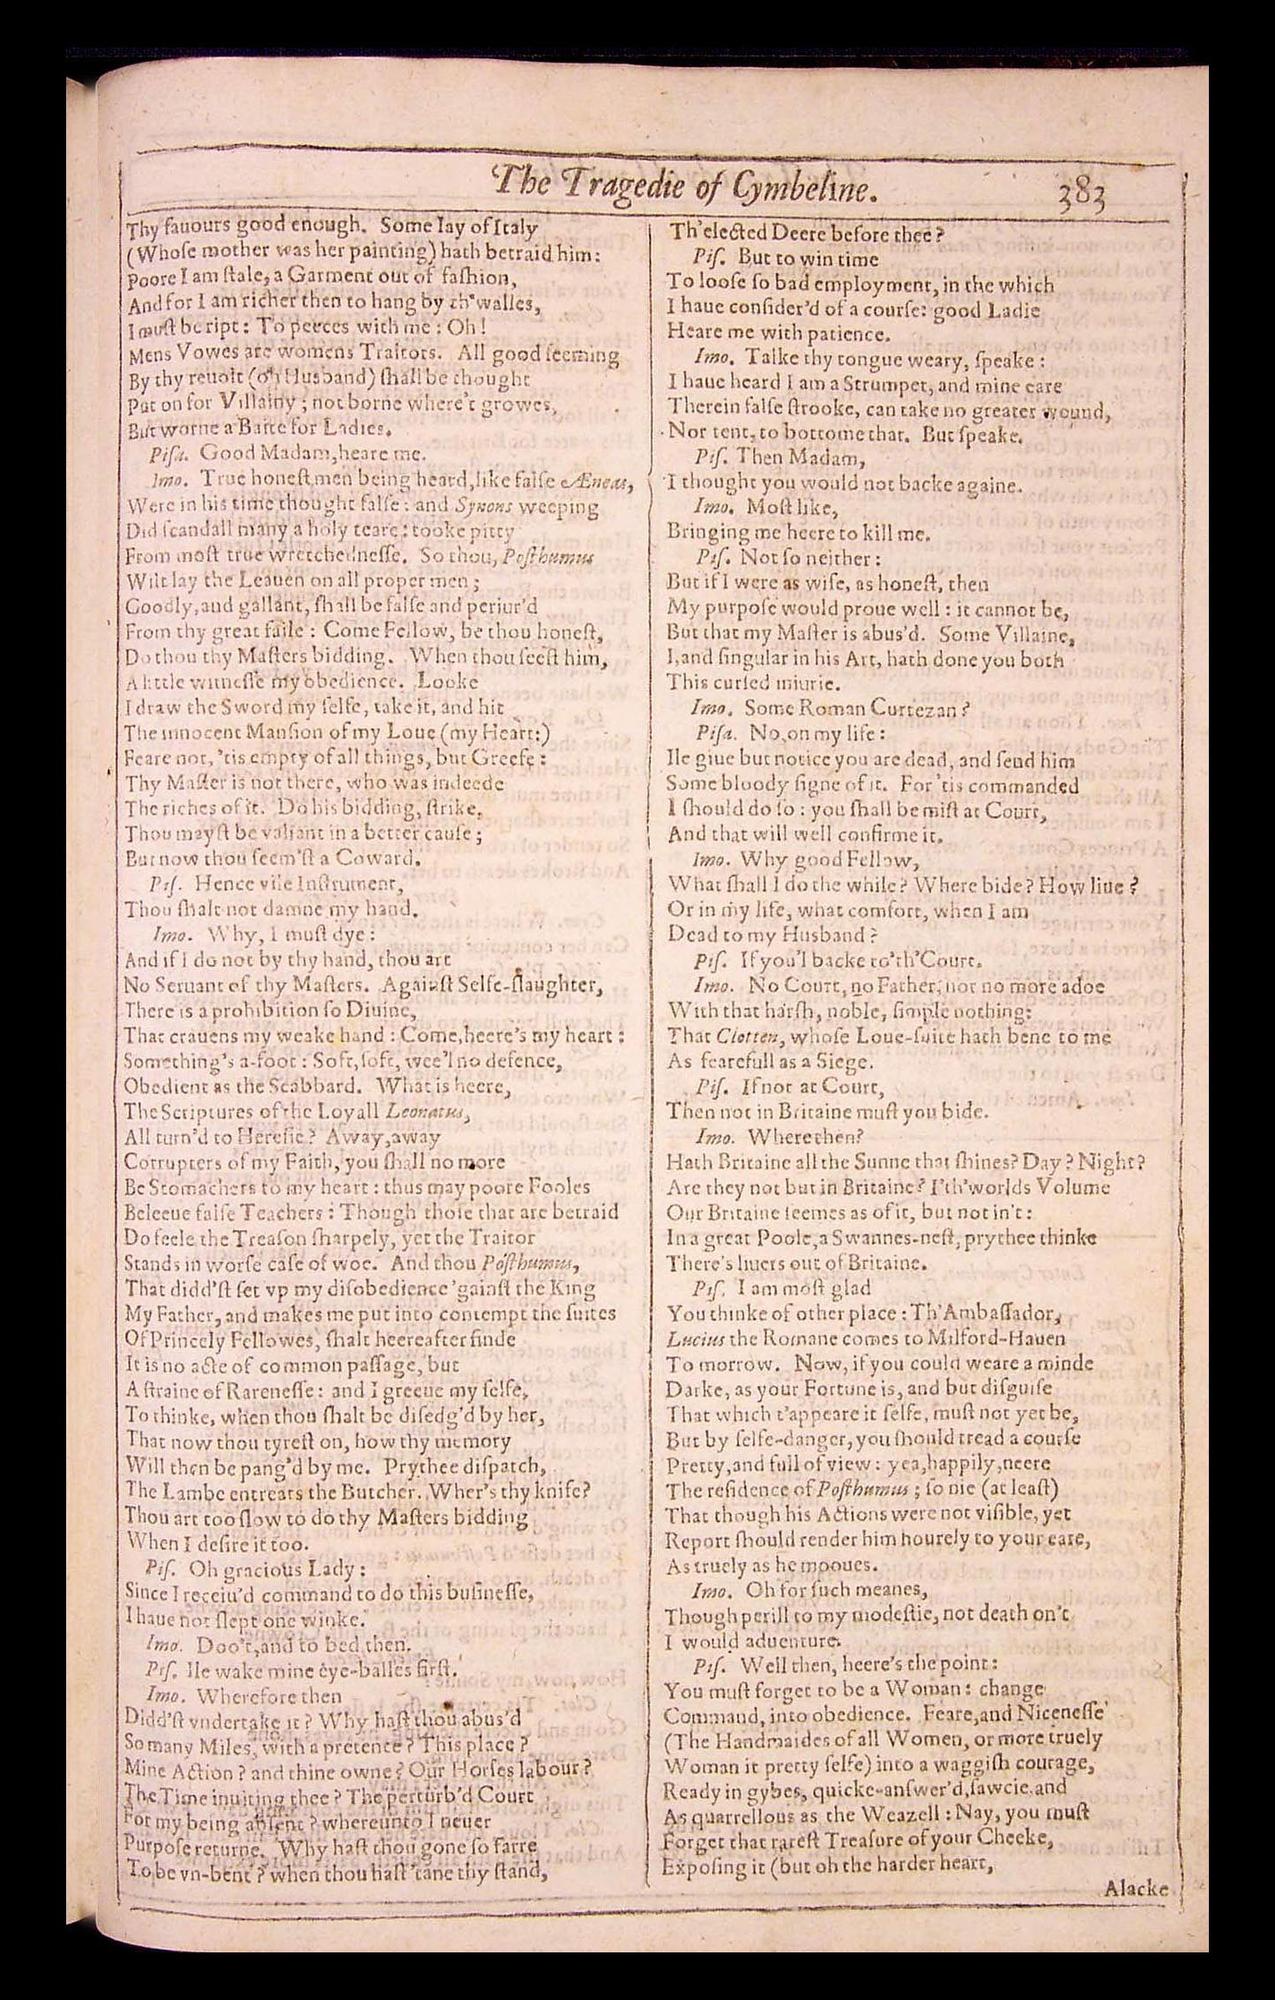 The Tragedie of Cymbeline.
383
Thy fauours good enough. Some Iay of Italy
(Whoſe mother was her painting) hath betraid him:
Poore I am ſtale, a Garment out of faſhion,
And for I am richer then to hang by th'walles,
I muſt be ript: To peeces with me: Oh!
Mens Vowes are womens Traitors. All good ſeeming
By thy reuolt (oh Husband) ſhall be thought
Put on for Villainy; not borne where't growes,
But worne a Baite for Ladies.
Piſa. Good Madam, heare me.
Imo. True honeſt men being heard, like falſe Æneas,
Were in his time thought falſe: and Synons weeping
Did ſcandall many a holy teare: tooke pitty
From moſt true wretchedneſſe. So thou, Poſthumus
Wilt lay the Leauen on all proper men;
Goodly, and gallant, ſhall be falſe and periur'd
From thy great faile: Come Fellow, be thou honeſt,
Do thou thy Maſters bidding. When thou ſeeſt him,
A little witneſſe my obedience. Looke
I draw the Sword my ſelfe, take it, and hit
The innocent Manſion of my Loue (my Heart:)
Feare not, 'tis empty of all things, but Greefe:
Thy Maſter is not there, who was indeede
The riches of it. Do his bidding, ſtrike,
Thou mayſt be valiant in a better cauſe;
But now thou ſeem'ſt a Coward.
Piſ. Hence vile Inſtrument,
Thou ſhalt not damne my hand.
Imo. Why, I muſt dye:
And if I do not by thy hand, thou art
No Seruant of thy Maſters. Againſt Selfe-ſlaughter,
There is a prohibition ſo Diuine,
That crauens my weake hand: Come, heere's my heart:
Something's a-foot: Soft, ſoft, wee'l no defence,
Obedient as the Scabbard. What is heere,
The Scriptures of the Loyall Leonatus,
All turn'd to Hereſie? Away, away
Corrupters of my Faith, you ſhall no more
Be Stomachers to my heart: thus may poore Fooles
Beleeue falſe Teachers: Though thoſe that are betraid
Do feele the Treaſon ſharpely, yet the Traitor
Stands in worſe caſe of woe. And thou Poſthumus,
That didd'ſt ſet vp my diſobedience 'gainſt the King
My Father, and makes me put into contempt the ſuites
Of Princely Fellowes, ſhalt heereafter finde
It is no acte of common paſſage, but
A ſtraine of Rareneſſe: and I greeue my ſelfe,
To thinke, when thou ſhalt be diſedg'd by her,
That now thou tyreſt on, how thy memory
Will then be pang'd by me. Prythee diſpatch,
The Lambe entreats the Butcher. Wher's thy knife?
Thou art too ſlow to do thy Maſters bidding
When I deſire it too.
Piſ. Oh gracious Lady:
Since I receiu'd command to do this buſineſſe,
I haue not ſlept one winke.
Imo. Doo't, and to bed then.
Piſ. Ile wake mine eye-balles firſt.
Imo. Wherefore then
Didd'ſt vndertake it? Why haſt thou abus'd
So many Miles, with a pretence? This place?
Mine Action? and thine owne? Our Horſes labour?
The Time inuiting thee? The perturb'd Court
For my being abſent? whereunto I neuer
Purpoſe returne. Why haſt thou gone ſo farre
To be vn-bent? when thou haſt 'tane thy ſtand,
Th'elected Deere before thee?
Piſ. But to win time
To looſe ſo bad employment, in the which
I haue conſider'd of a courſe: good Ladie
Heare me with patience.
Imo. Talke thy tongue weary, ſpeake:
I haue heard I am a Strumpet, and mine eare
Therein falſe ſtrooke, can take no greater wound,
Nor tent, to bottome that. But ſpeake.
Piſ. Then Madam,
I thought you would not backe againe.
Imo. Moſt like,
Bringing me heere to kill me.
Piſ. Not ſo neither:
But if I were as wiſe, as honeſt, then
My purpoſe would proue well: it cannot be,
But that my Maſter is abus'd. Some Villaine,
I, and ſingular in his Art, hath done you both
This curſed iniurie.
Imo. Some Roman Curtezan?
Piſa. No, on my life:
Ile giue but notice you are dead, and ſend him
Some bloody ſigne of it. For 'tis commanded
I ſhould do ſo: you ſhall be miſt at Court,
And that will well confirme it.
Imo. Why good Fellow,
What ſhall I do the while? Where bide? How liue?
Or in my life, what comfort, when I am
Dead to my Husband?
Piſ. If you'l backe to'th'Court.
Imo. No Court, no Father, nor no more adoe
With that harſh, noble, ſimple nothing:
That Clotten, whoſe Loue-ſuite hath bene to me
As fearefull as a Siege.
Piſ. If not at Court,
Then not in Britaine muſt you bide.
Imo. Where then?
Hath Britaine all the Sunne that ſhines? Day? Night?
Are they not but in Britaine? I'th'worlds Volume
Our Britaine ſeemes as of it, but not in't:
In a great Poole, a Swannes-neſt, prythee thinke
There's liuers out of Britaine.
Piſ. I am moſt glad
You thinke of other place: Th'Ambaſſador,
Lucius the Romane comes to Milford-Hauen
To morrow. Now, if you could weare a minde
Darke, as your Fortune is, and but diſguiſe
That which t'appeare it ſelfe, muſt not yet be,
But by ſelfe-danger, you ſhould tread a courſe
Pretty, and full of view: yea, happily, neere
The reſidence of Poſthumus; ſo nie (at leaſt)
That though his Actions were not viſible, yet
Report ſhould render him hourely to your eare,
As truely as he mooues.
Imo. Oh for ſuch meanes,
Though perill to my modeſtie, not death on't
I would aduenture.
Piſ. Well then, heere's the point:
You muſt forget to be a Woman: change
Command, into obedience. Feare, and Niceneſſe
(The Handmaides of all Women, or more truely
Woman it pretty ſelfe) into a waggiſh courage,
Ready in gybes, quicke-anſwer'd, ſawcie, and
As quarrellous as the Weazell: Nay, you muſt
Forget that rareſt Treaſure of your Cheeke,
Expoſing it (but oh the harder heart,
Alacke